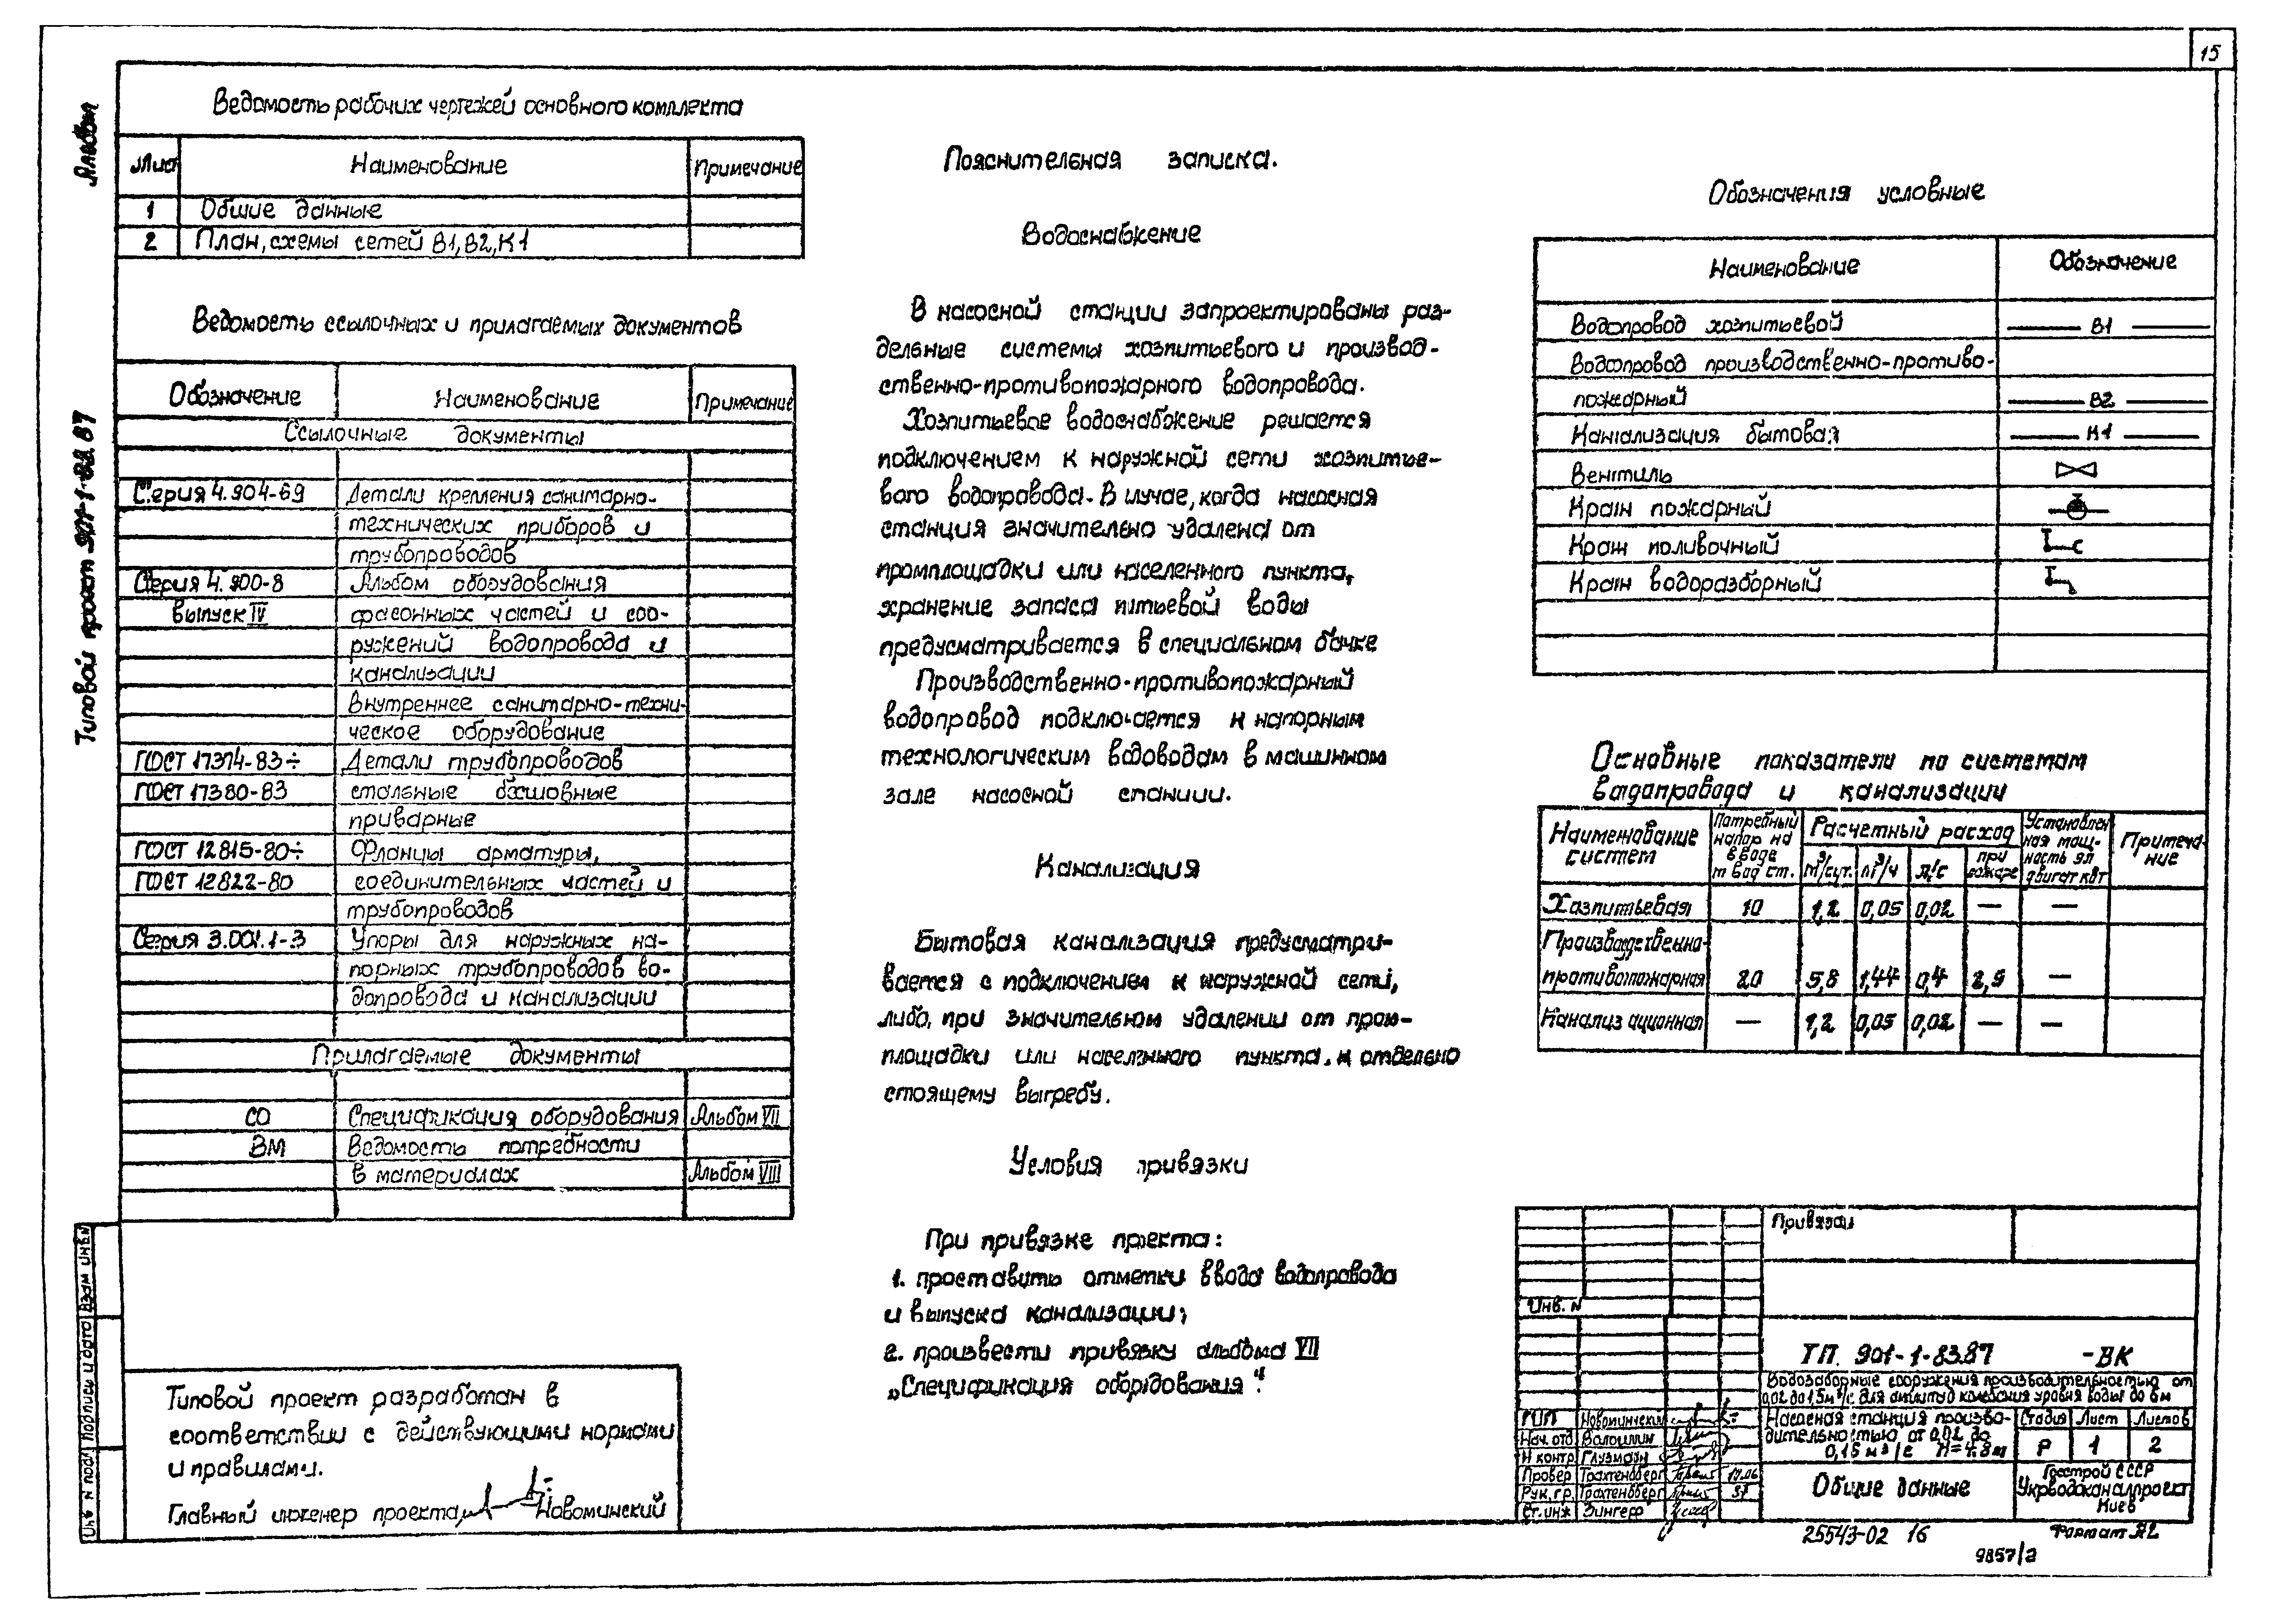 15
Альбом
Типовой проект 901-1-83.87
Ведомость рабочих чертежей основного комплекта
Лист Наименование Примечание
1 Общие данные
2 План, схемы сетей В1, В2, К1
Ведомость ссылочных и прилагаемых документов
Обозначение Наименование Примечание
Ссылочные документы
Серия 4.904-69 Детали крепления санитарно-
технических приборов и
трубопроводов
Серия 4.900-8 Альбом оборудования
выпуск IV фасонных частей и соо-
ружений водопровода и
канализации
Внутреннее санитарно-техни-
ческое оборудование
ГОСТ 17374-83÷ Детали трубопроводов
ГОСТ 17380-83 стальные бесшовные
приварные
ГОСТ 12815-80÷ Фланцы арматуры,
ГОСТ 12822-80 соединительных частей и
трубопроводов
Серия 3.001.1-3 Упоры для наружных на-
порных трубопроводов во-
допровода и канализации
Прилагаемые документы
СО Спецификация оборудования Альбом VII
ВМ Ведомость потребности
в материалах Альбом VIII
Типовой проект разработан в
соответствии с действующими нормами
и правилами.
Главный инженер проекта Новоминский
Инв N подл Подпись и дата Взам инв.N
Пояснительная записка.
Водоснабжение
В насосной станции запроектированы раз-
дельные системы хозпитьевого и производ-
ственно-противопожарного водопровода.
Хозпитьевое водоснабжение решается
подключением к наружной сети хозпитье-
вого водопровода. В случае, когда насосная
станция значительно удалена от
промплощадки или населенного пункта,
хранение запаса питьевой воды
предусматривается в специальном бачке
Производственно-противопожарный
водопровод подключается к напорным
технологическим водоводам в машинном
зале насосной станции.
Канализация
Бытовая канализация предусматри-
вается с подключением к наружной сети,
либо, при значительном удалении от пром-
площадки или населенного пункта, к отдельно
стоящему выгребу.
Условия привязки
При привязке проекта:
1. проставить отметки ввода водопровода
и выпуска канализации;
2. произвести привязку альбома VII
„Спецификация оборудования".
Обозначения условные
Наименование Обозначение
Водопровод хозпитьевой В1
Водопровод производственно-противо-
пожарный В2
Канализация бытовая К1
Вентиль
Кран пожарный
Кран поливочный
Кран водоразборный
Основные показатели по системам
водопровода и канализации
Наименование систем Потребный напор на вводе м вод ст. Расчетный расход м³/сут. м³/ч л/с при пожаре Установлен ная мощ- ность эл двигат кВт Примеча- ние
Хозпитьевая 10 1,2 0,05 0,02 — —
Производственно-
противопожарная 20 5,8 1,44 0,4 2,9 —
Канализационная — 1,2 0,05 0,02 — —
Привязан
Инв. N
ТП 901-1-83.87 -ВК
Водозаборные сооружения производительностью от
0,02 до 1,5 м³/с для амплитуд колебания уровня воды до 6м
ГИП Новоминский
Нач. отд Волошин
Н контр Глузман
Провер Трахтенберг 17.06
Рук. гр. Трахтенберг 87
Ст. инж Зингер
Насосная станция произво-
дительностью от 0,02 до
0,15 м³/с Н=4.8м
Стадия Лист Листов
Р 1 2
Общие данные
Госстрой СССР
Укрводоканалпроект
Киев
25543-02 16
Формат А2
9857/2